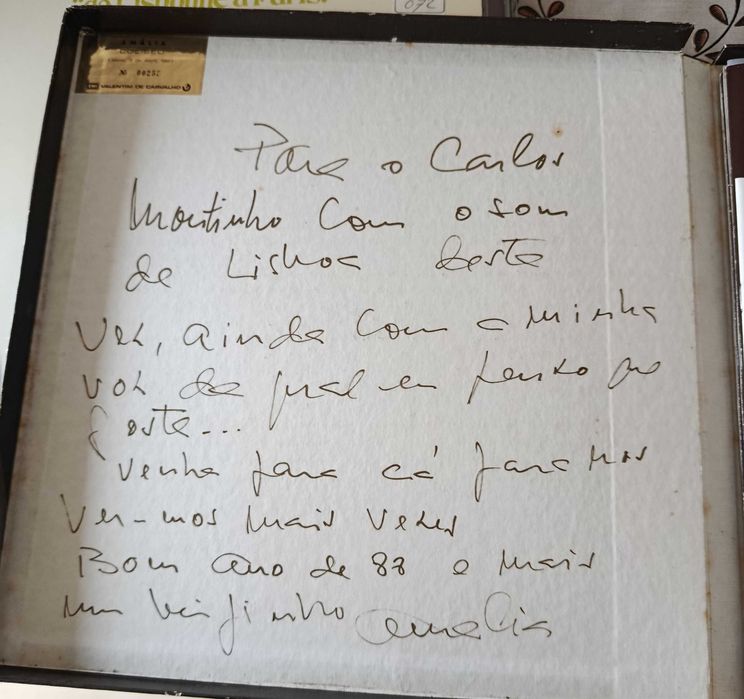 072
AMÁLIA
COLISEU
Nº 00252
VALENTIM DE CARVALHO
Para o Carlos
Moutinho com o som
de Lisboa desta
vez, ainda com a minha
voz da qual eu penso que
gosta...
Venha para cá para nos
ver-mos mais vezes
Bom ano de 88 e mais
um beijinho Amalia